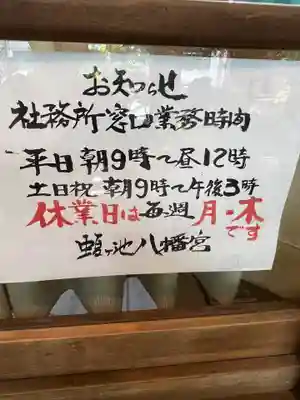 お知らせ
社務所窓口業務時间
平日朝9時〜昼12時
土日祝 朝9時〜午後3時
休業日は毎週月・木です
蛭ヶ池八幡宮